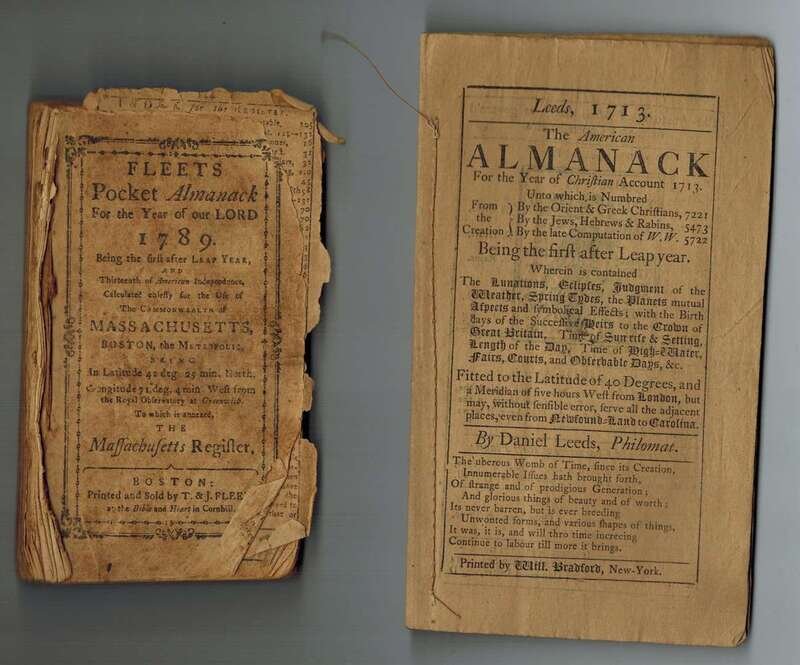 I N D E X for the REGISTER.
FLEETS
Pocket Almanack
For the Year of our LORD
1789.
Being the first after LEAP YEAR,
AND
Thirteenth of American Independence,
Calculated chiefly for the Use of
The COMMONWEALTH of
MASSACHUSETTS,
BOSTON, the METROPOLIS,
BEING
In Latitude 42 deg. 25 min. North,
Longitude 71 deg. 4 min. West from
the Royal Observatory at Greenwich.
To which is annexed,
THE
Maſſachuſetts Regiſter.
BOSTON:
Printed and Sold by T. & J. FLEET
at the Bible and Heart in Cornhill.
Leeds, 1713.
The American
ALMANACK
For the Year of Chriſtian Account 1713.
Unto which is Numbred
From } By the Orient & Greek Chriſtians, 7221
the } By the Jews, Hebrews & Rabins, 5473
Creation } By the late Computation of W. W. 5722
Being the firſt after Leap year.
Wherein is contained
The Lunations, Eclipſes, Judgment of the
Weather, Spring Tydes, the Planets mutual
Aſpects and ſymbolical Effects; with the Birth
days of the Succeſſive Heirs to the Crown of
Great Britain, Time of Sunriſe & Setting,
Length of the Day, Time of High-Water,
Fairs, Courts, and Obſervable Days, &c.
Fitted to the Latitude of 40 Degrees, and
a Meridian of five hours Weſt from London, but
may, without ſenſible error, ſerve all the adjacent
places, even from Newfound-Land to Carolina.
By Daniel Leeds, Philomat.
The uberous Womb of Time, ſince its Creation,
Innumerable Iſſues hath brought forth,
Of ſtrange and of prodigious Generation;
And glorious things of beauty and of worth:
Its never barren, but is ever breeding
Unwonted forms, and various ſhapes of things,
It was, it is, and will thro time increcing
Continue to labour till more it brings.
Printed by Will. Bradford, New-York.